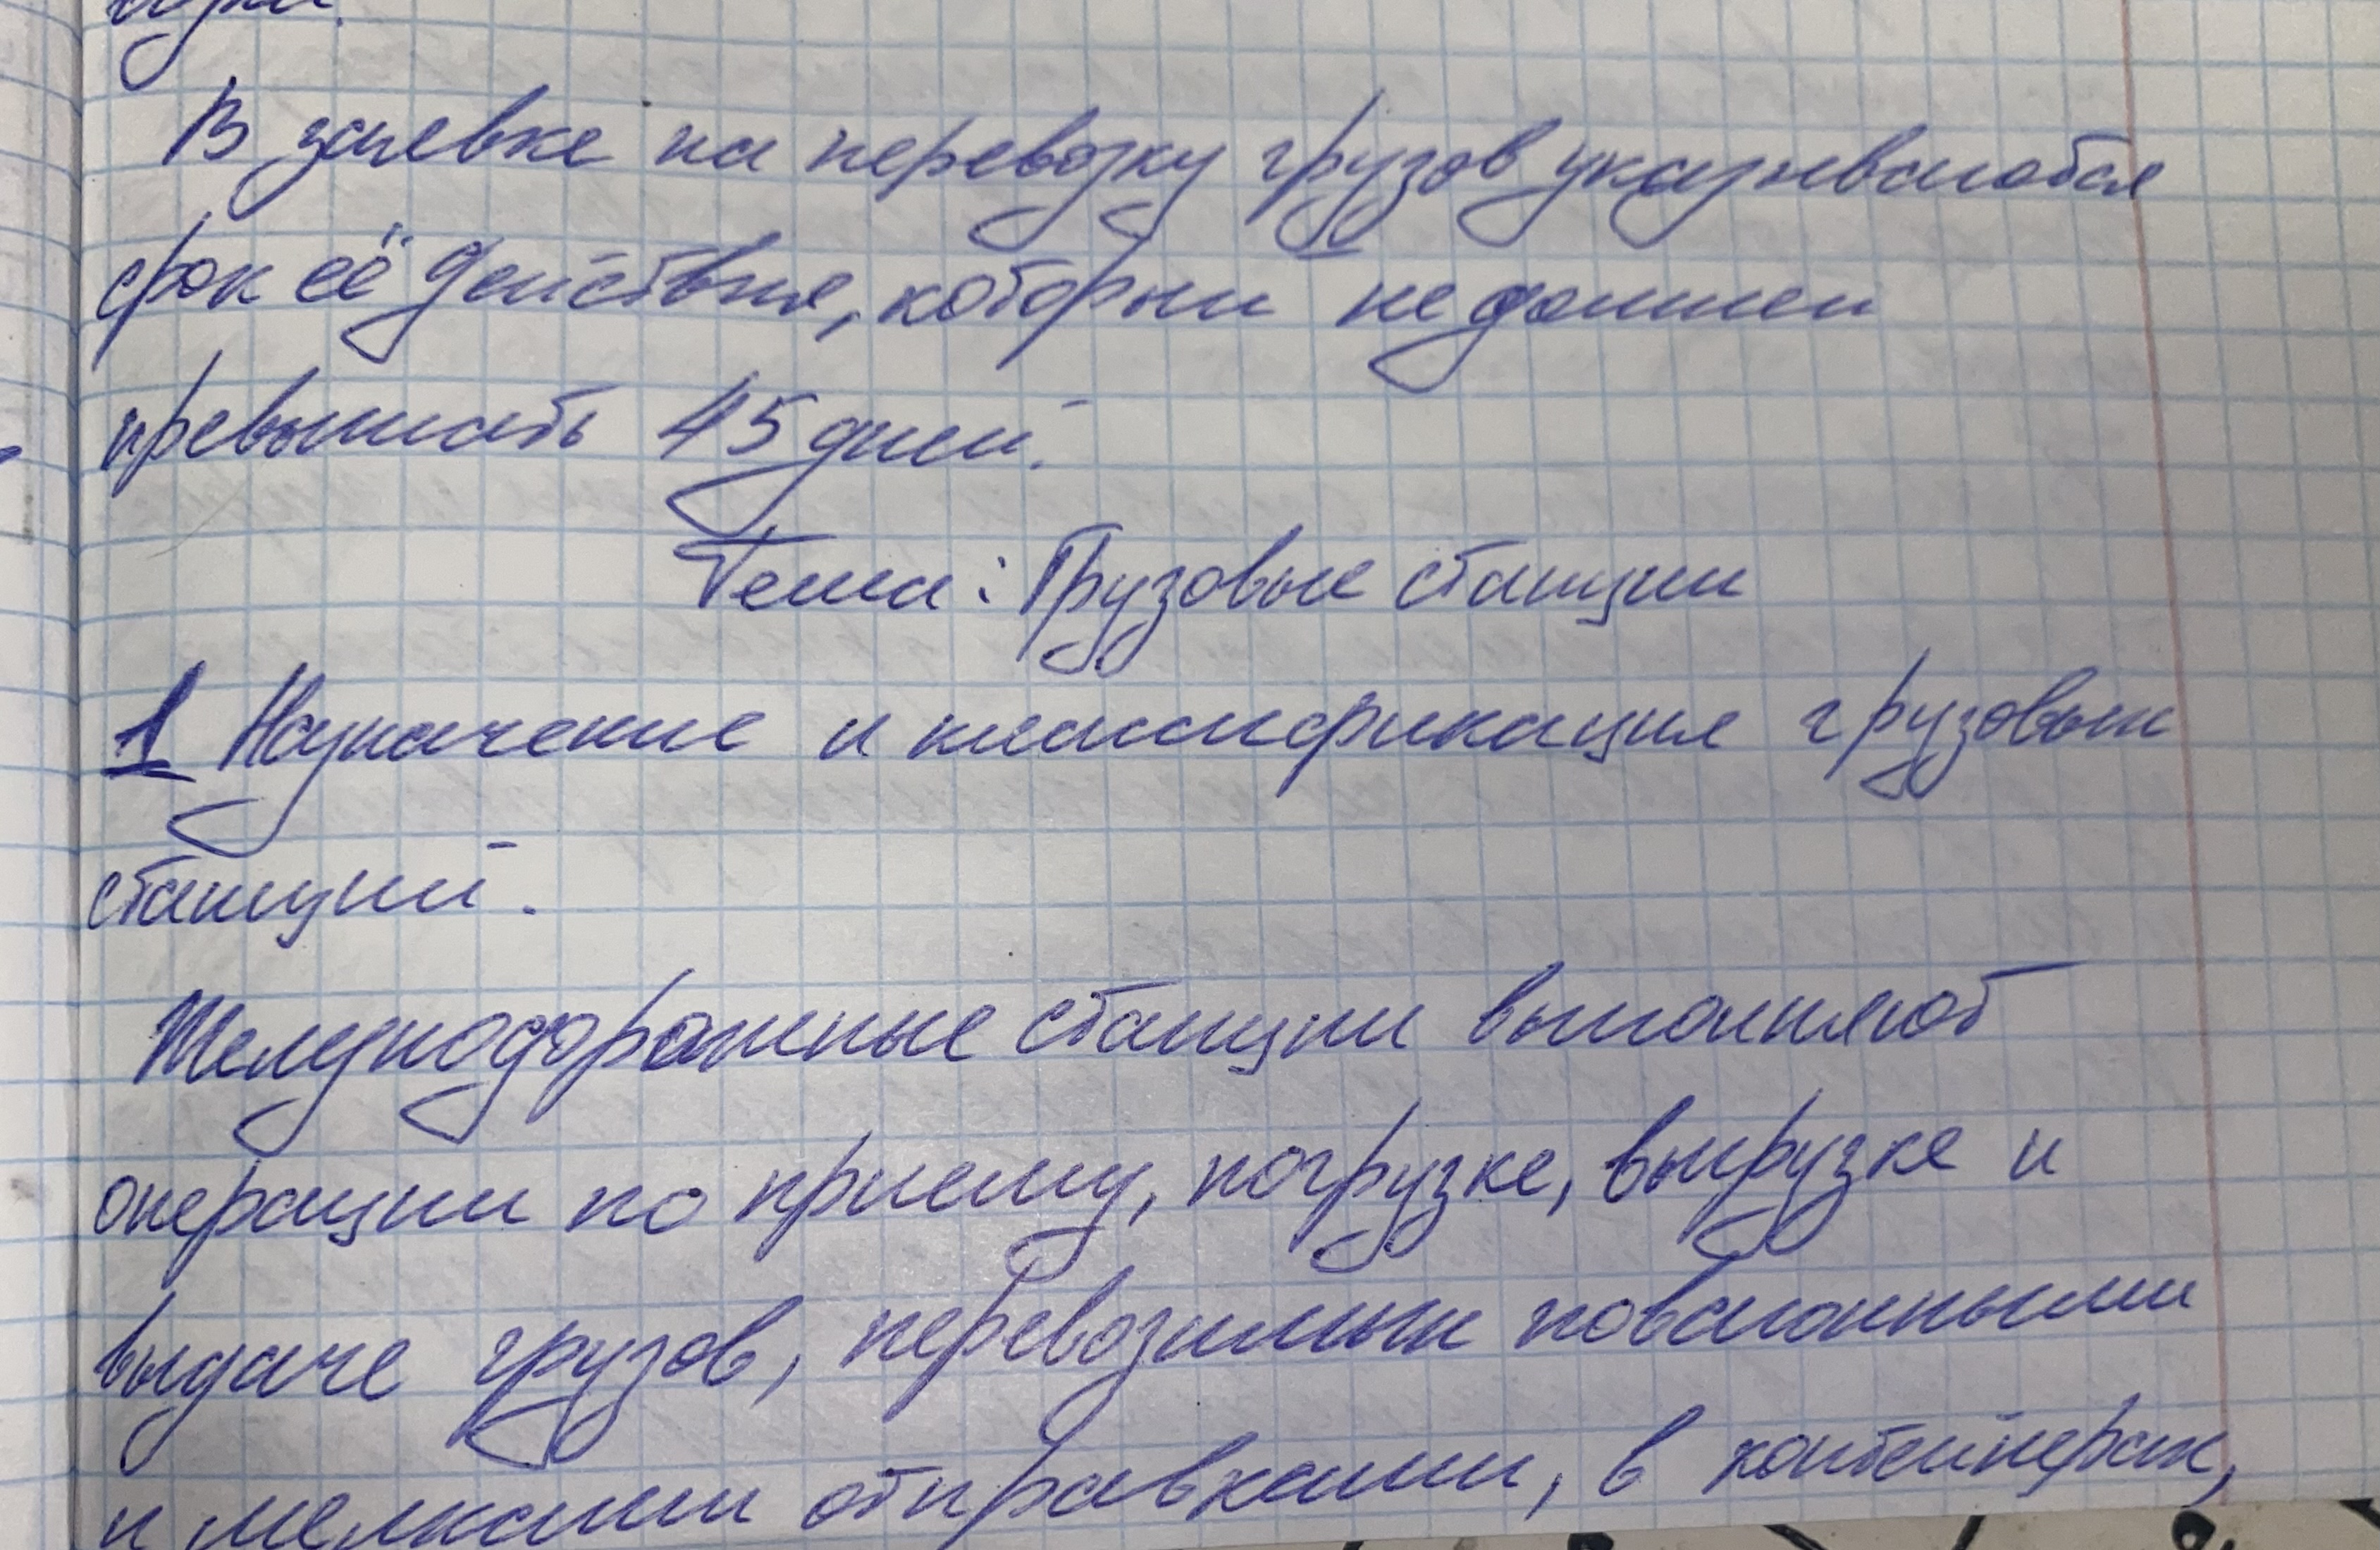 В заявке на перевозку грузов указываются
срок её действия, который не должен
превышать 45 дней.
Тема: Грузовые станции
1 Назначение и классификация грузовых
станций.
Железнодорожные станции выполняют
операции по приему, погрузке, выгрузке и
выдаче грузов, перевозимых повагонными
и мелкими отправками, в контейнерах,